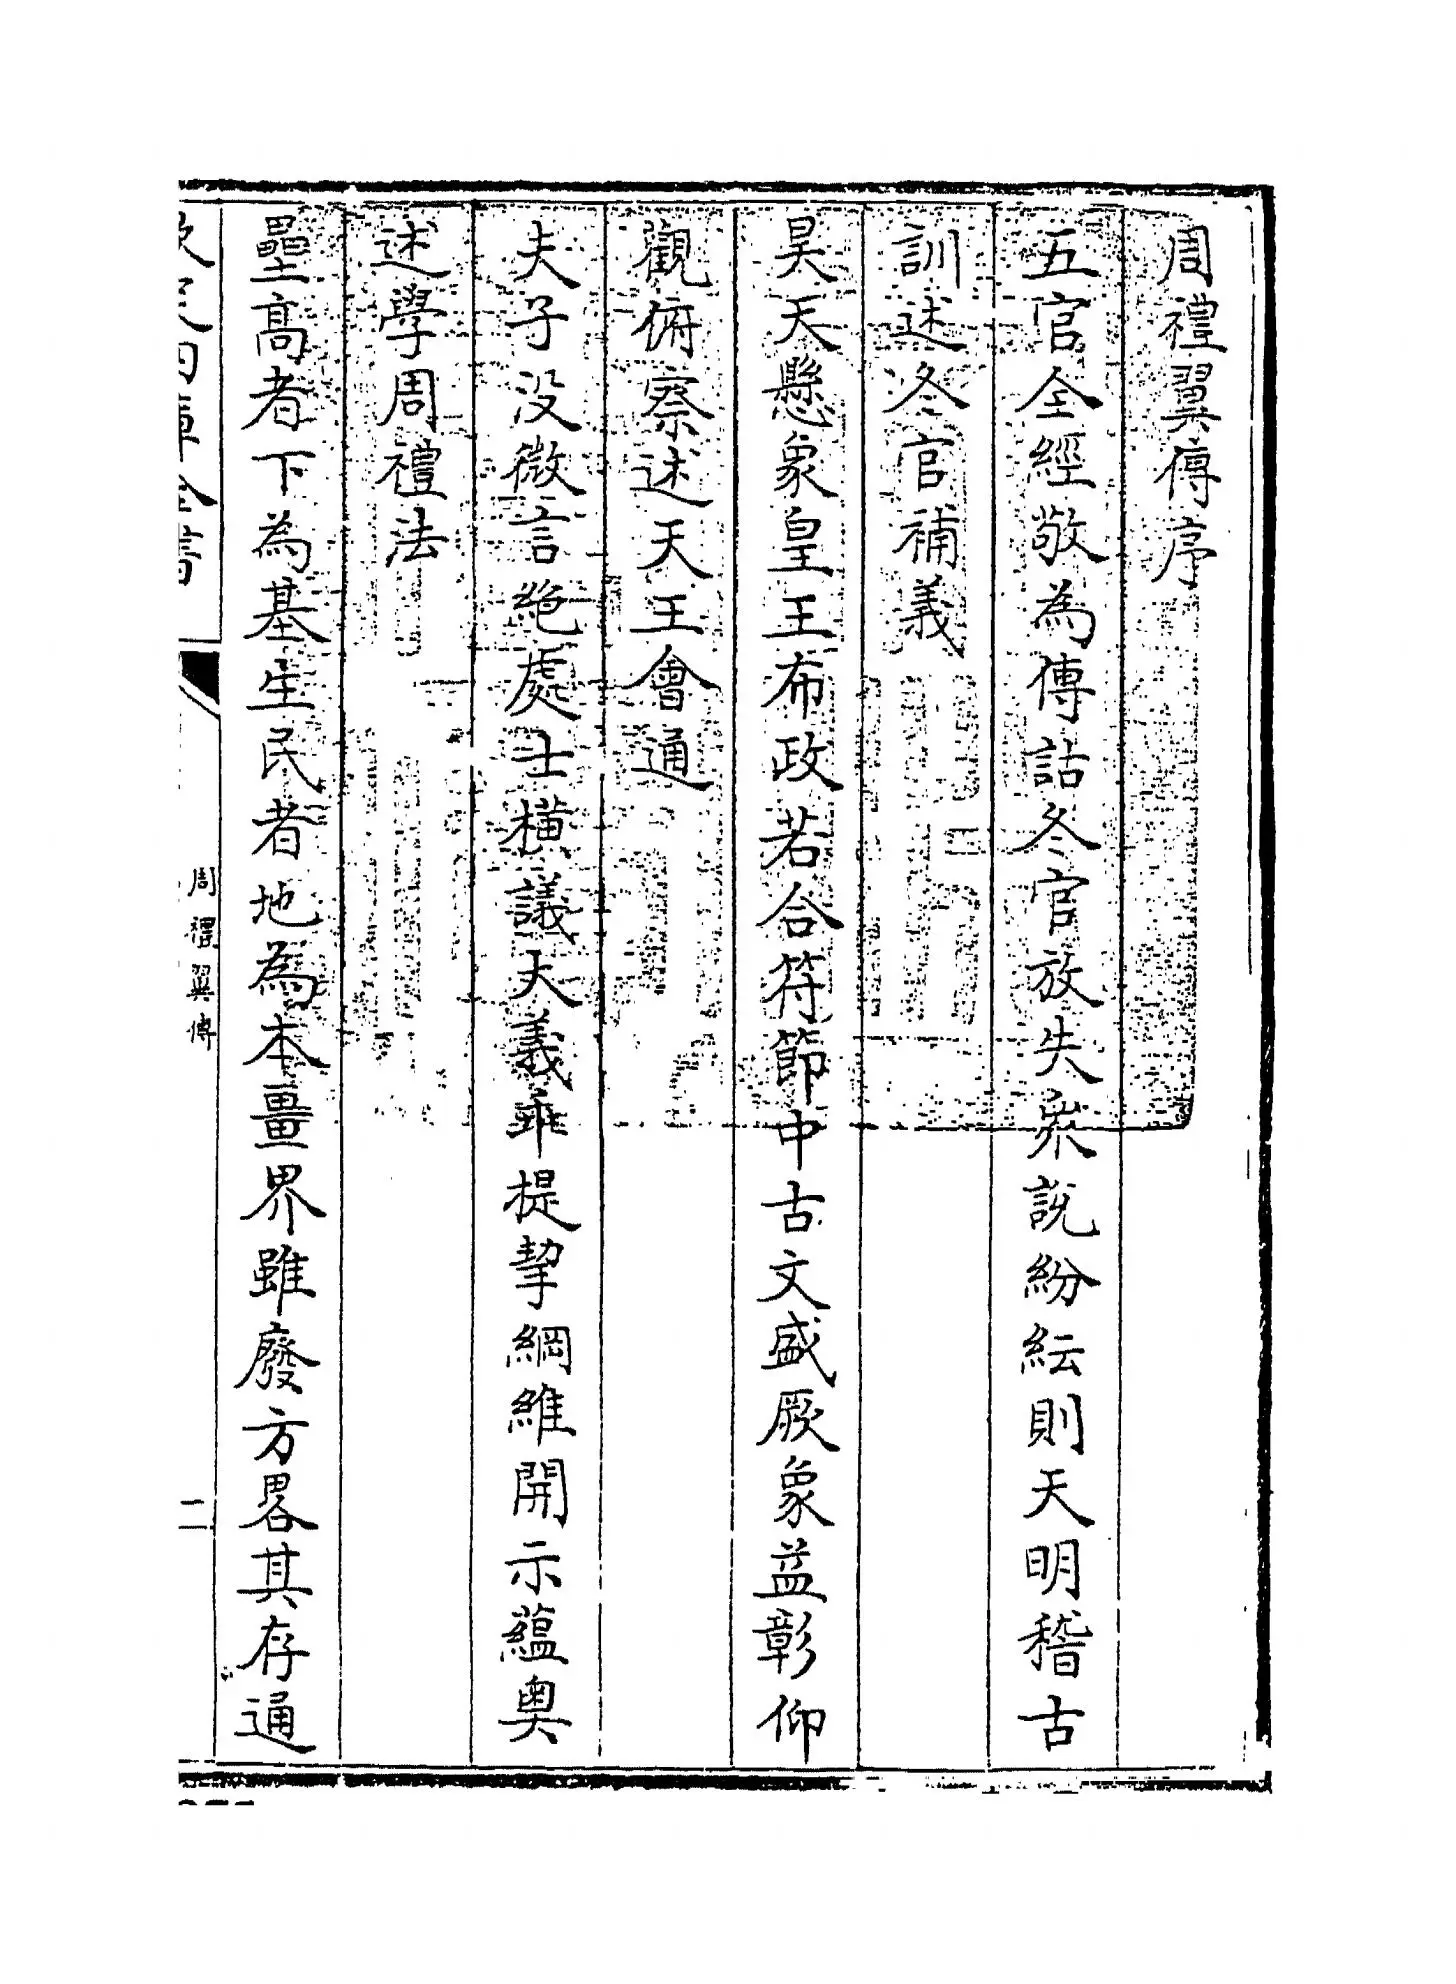 周禮翼傳序
五官全經敬為傳詁冬官放失衆說紛紜則天明稽古
訓述冬官補義
昊天懸象皇王布政若合符節中古文盛厥象益彰仰
觀俯察述天王會通
夫子没微言絶處士横議大義乖提挈綱維開示蘊奥
述學周禮法
壘高者下為基生民者地為本畺界雖廢方畧其存通
欽定四庫全書
周禮翼傳
二